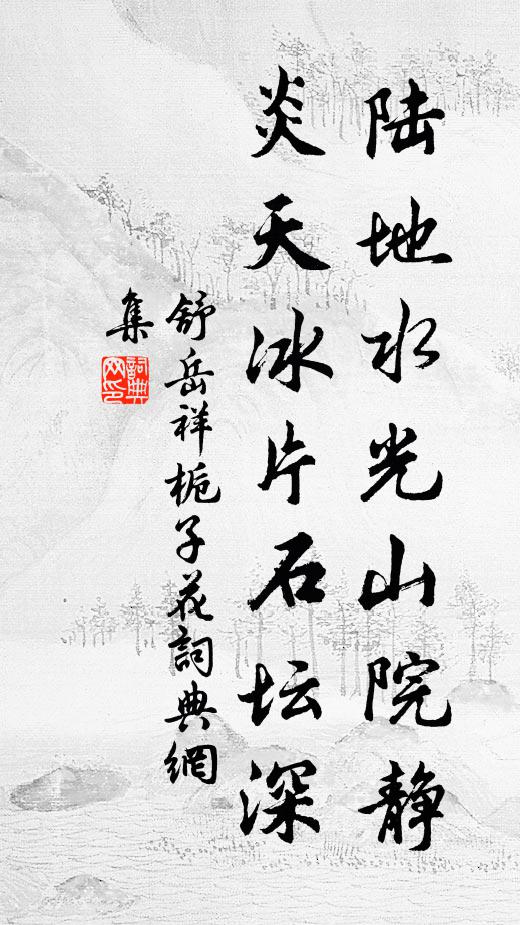 陆地水光山院静
炎天冰片石坛深
舒岳祥栀子花詞典網
集
詞典网印